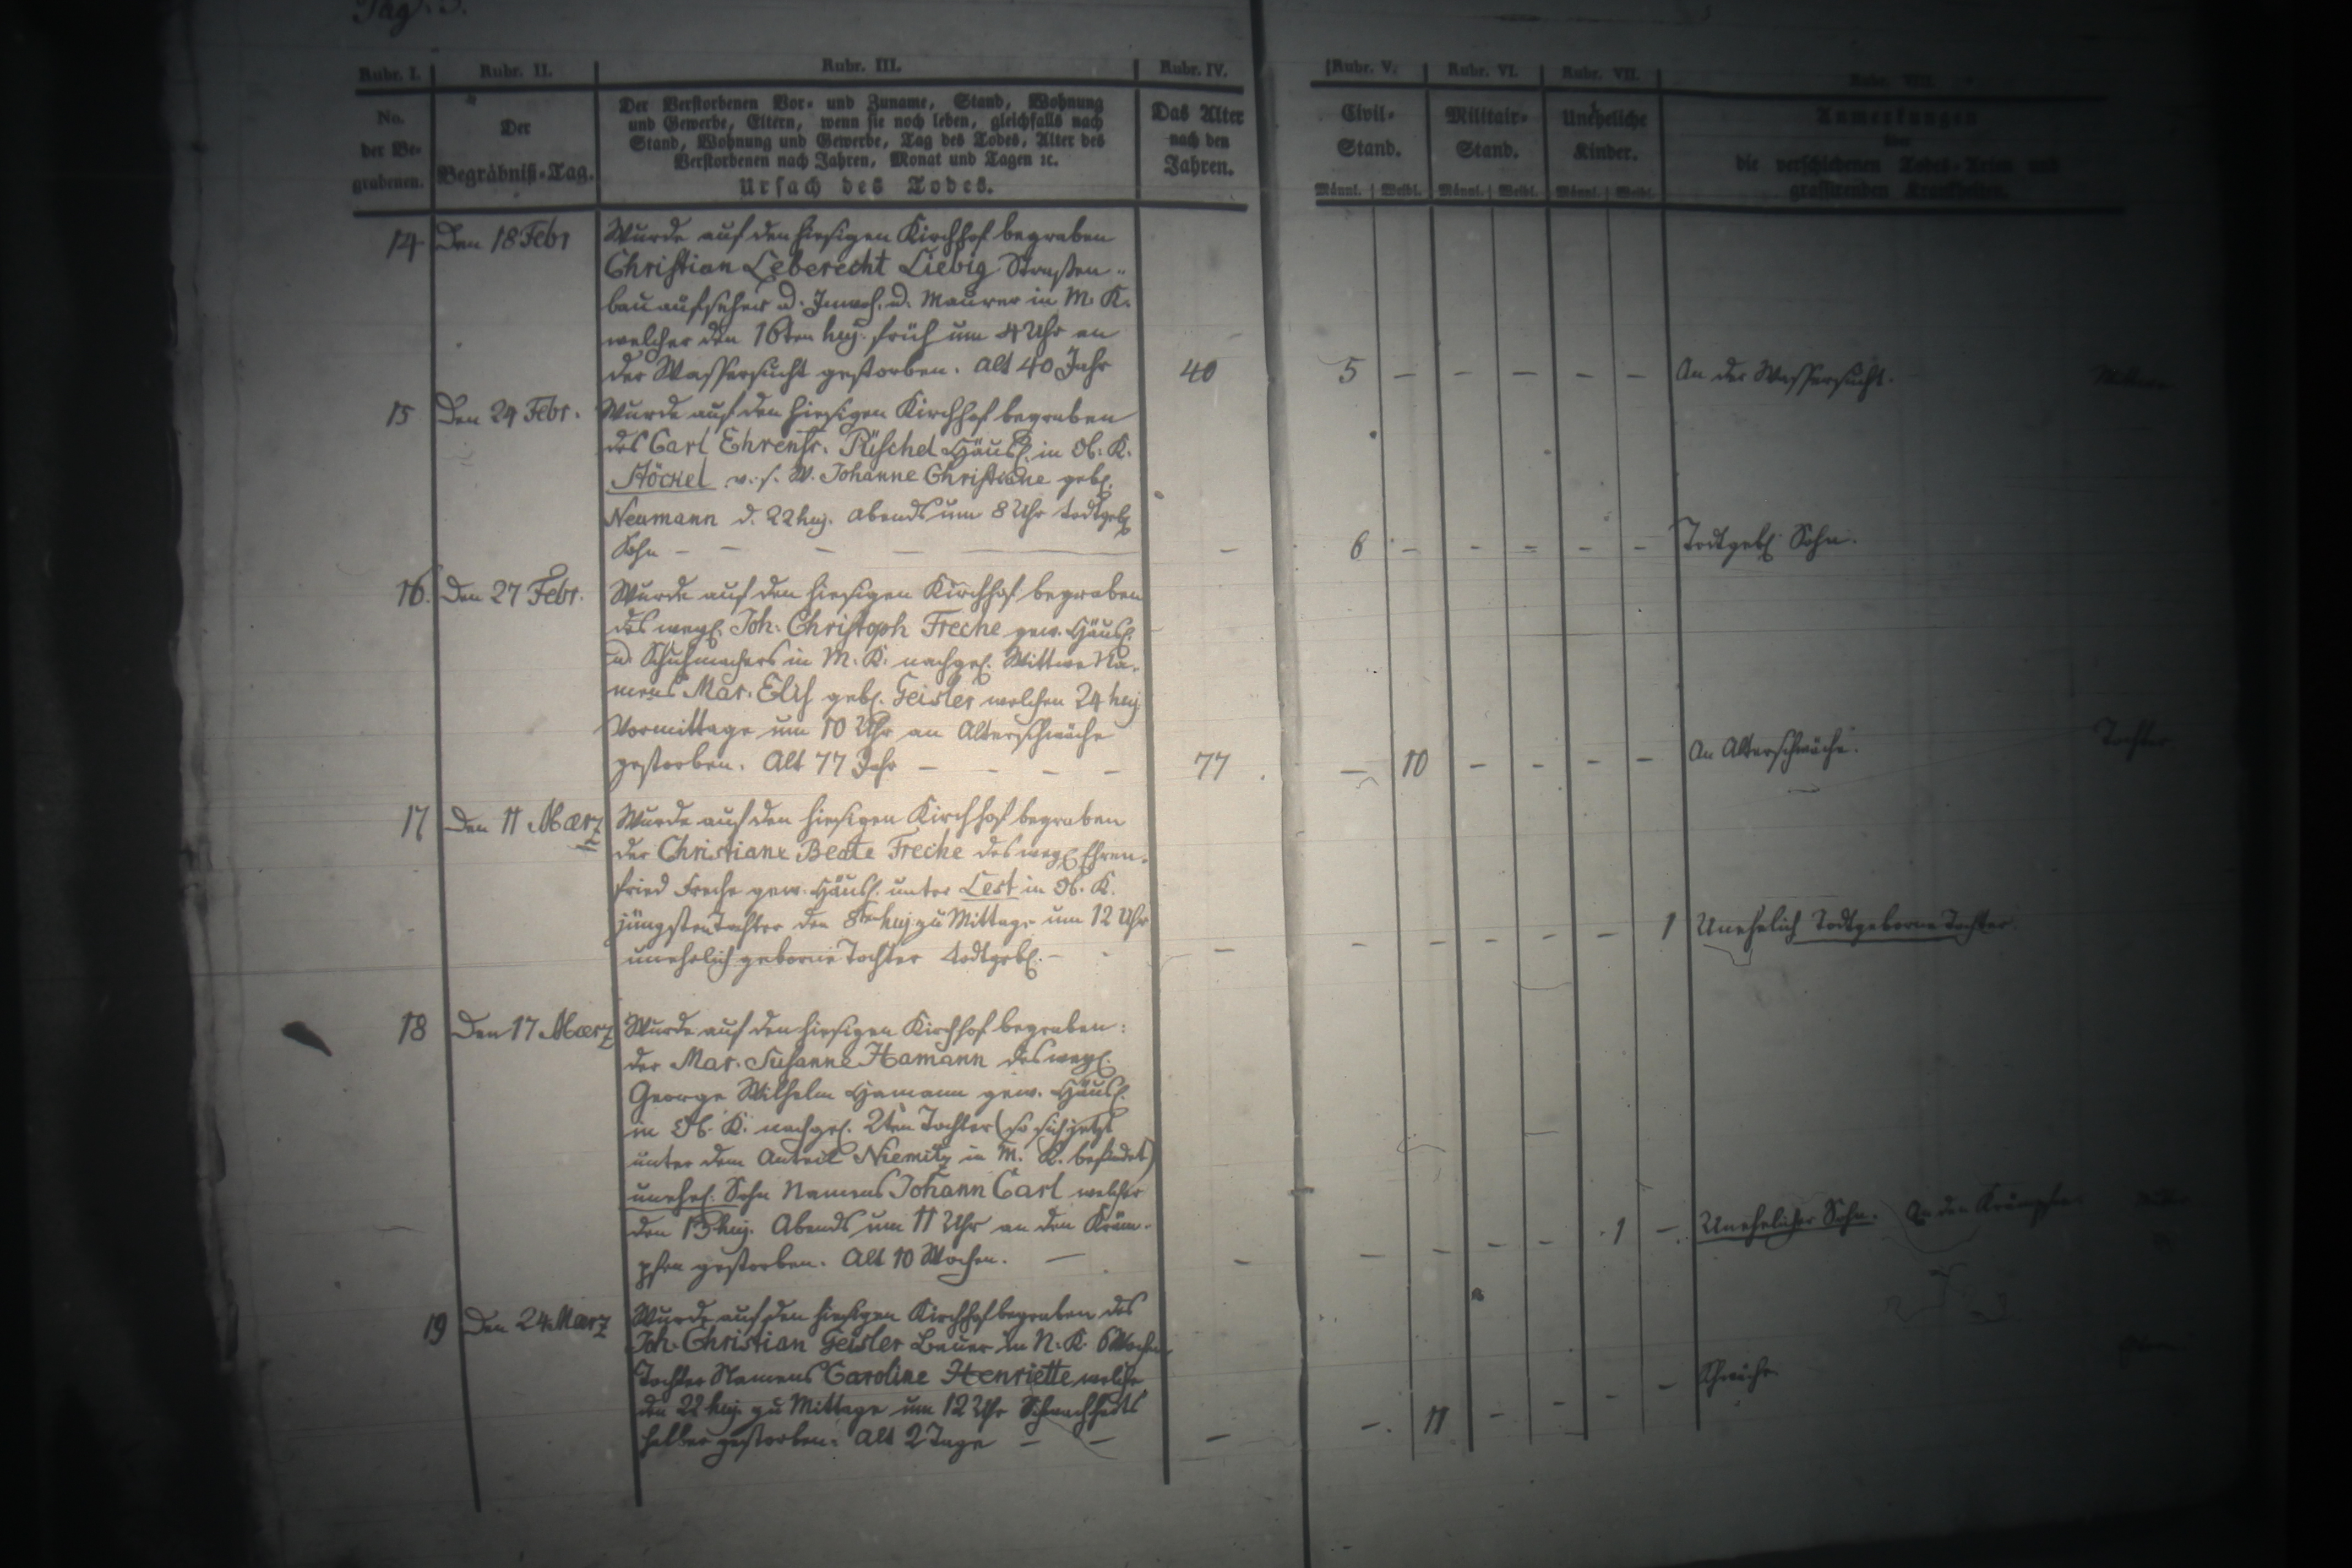 Pag. 3.
Rubr. I. Rubr. II. Rubr. III. Rubr. IV. Rubr. V. Rubr. VI. Rubr. VII. Rubr. VIII.
No.
der Be-
grabenen.
Der
Begräbniß-Tag.
Der Verstorbenen Vor- und Zuname, Stand, Wohnung
und Gewerbe, Eltern, wenn sie noch leben, gleichfalls nach
Stand, Wohnung und Gewerbe, Tag des Todes, Alter des
Verstorbenen nach Jahren, Monat und Tagen ꝛc.
Ursach des Todes.
Das Alter
nach den
Jahren.
Civil-
Stand.
Männl. Weibl.
Militair-
Stand.
Männl. Weibl.
Uneheliche
Kinder.
Männl. Weibl.
Anmerkungen
über
die verschiedenen Todes-Arten und
grassirenden Krankheiten.
14 Den 18 Febr Wurde auf den hiesigen Kirchhof begraben
Christian Leberecht Liebig Straßen-
bauaufseher u. Inwoh. u. Maurer in M. K.
welcher den 16ten huj. früh um 4 Uhr an
der Wassersucht gestorben. Alt 40 Jahr 40 5 – – – – – An der Wassersucht.
15 Den 24 Febr. Wurde auf den hiesigen Kirchhof begraben
des Carl Ehrenfr. Püschel Häusl. in Ob. K.
Stöckel u. s. W. Johanne Christiane geb.
Neumann d. 22 huj. Abends um 8 Uhr todtgeb.
Sohn – – – – – 6 – – – – – Todtgeb. Sohn.
16. Den 27 Febr. Wurde auf den hiesigen Kirchhof begraben
des weyl. Joh. Christoph Freche gew. Häusl.
u. Schuhmachers in M. K. nachgel. Wittwe Na-
mens Mar. Elis geb. Geisler welchen 24 huj.
Vormittage um 10 Uhr an Alterschwäche
gestorben. Alt 77 Jahr – – – – 77 – 10 – – – – An Alterschwäche. Tochter
17 Den 11 Maerz Wurde auf den hiesigen Kirchhof begraben
der Christiane Beate Freche des weyl. Ehren-
fried Freche gew. Häusl. unter Lest in Ob. K.
jüngsten Tochter den 8ten huj. zu Mittage um 12 Uhr
unehelich geborne Tochter todtgeb. – – – – – – – – 1 Unehelich Todtgeborne Tochter.
18 Den 17 Maerz Wurde auf den hiesigen Kirchhof begraben:
der Mar. Susanne Hamann des weyl.
George Wilhelm Hamann gew. Häusl.
in Ob. K. nachgel. 2ten Tochter (so sich jetzt
unter dem Anteil Niemitz in M. K. befindet)
unehel. Sohn Namens Johann Carl welcher
den 15 huj. Abends um 11 Uhr an den Kräm-
pfen gestorben. Alt 10 Wochen. – – – – – – 1 – Unehelicher Sohn. An den Krämpfen.
19 Den 24 Maerz Wurde auf den hiesigen Kirchhof begraben des
Joh. Christian Geisler Bauer in N. K. 6 Wochen
Tochter Namens Caroline Henriette welche
den 22 huj. zu Mittage um 12 Uhr Schwachheits
halber gestorben. Alt 2 Tage – – – – 11 – – – – Schwäche